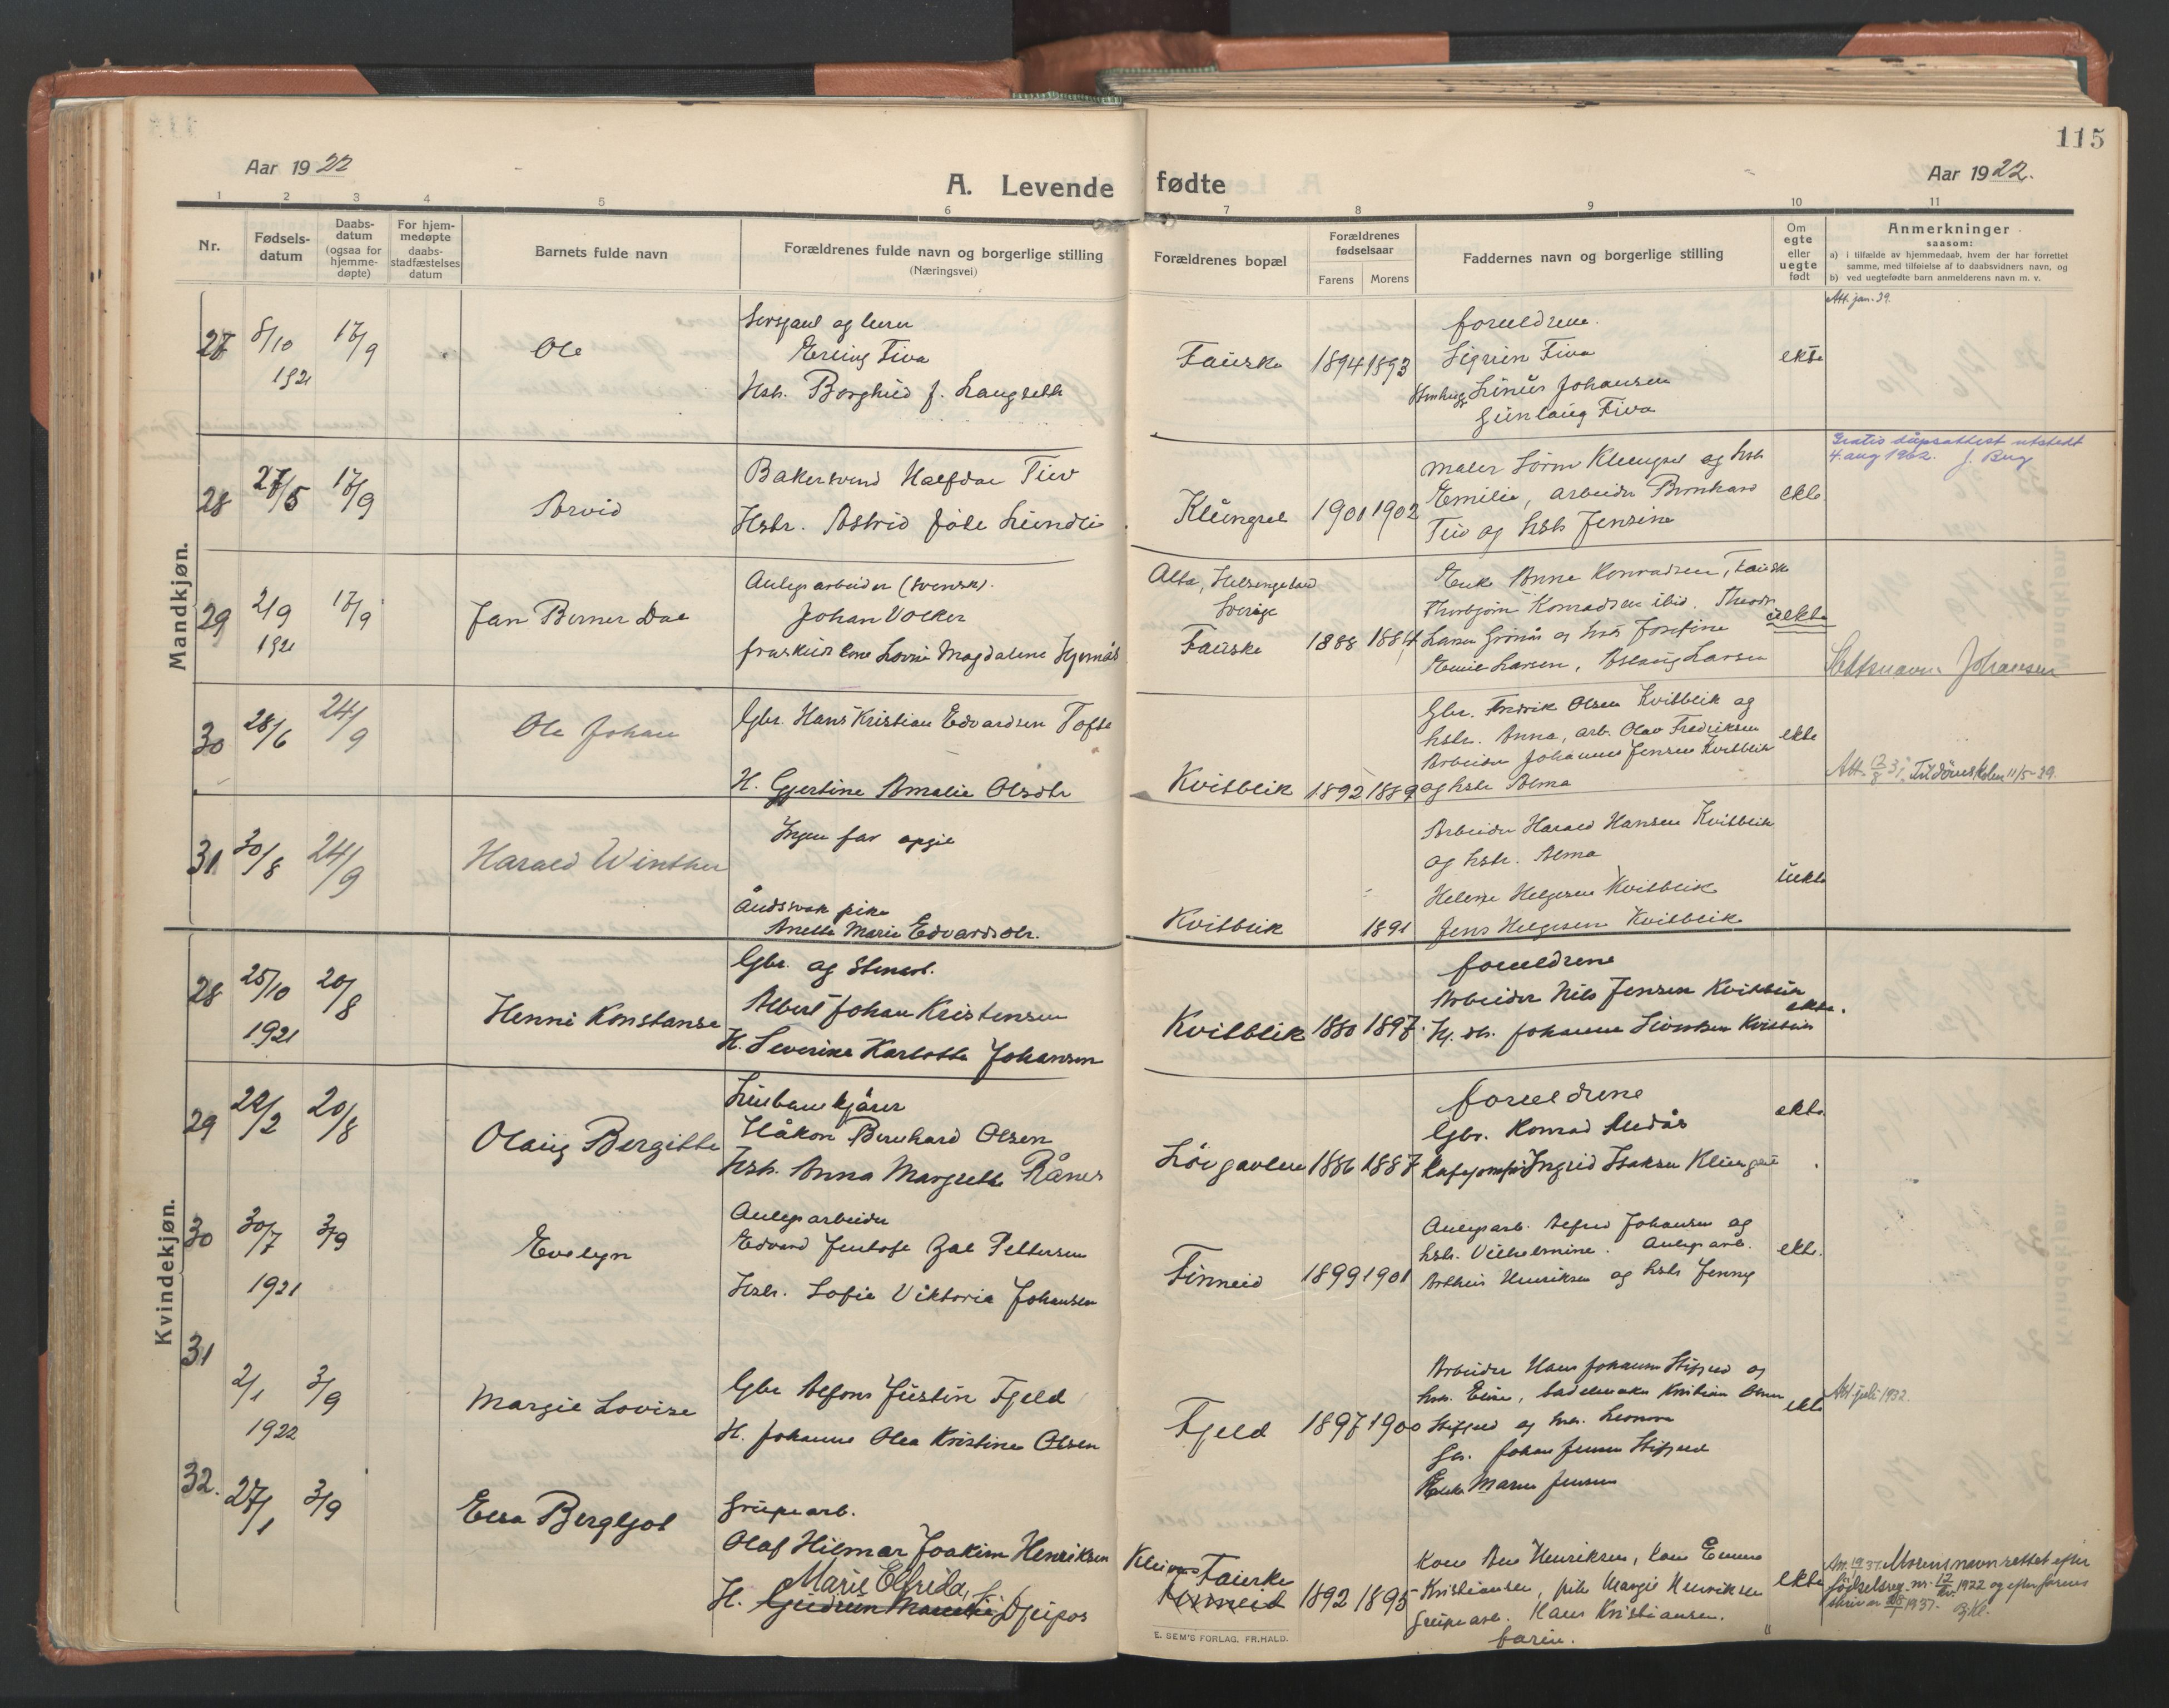 115
Aar 1922
A. Levende fødte
Aar 1922.
1 2 3 4 5 6 7 8 9 10 11
Nr.
Fødsels-
datum
Daabs-
datum
(ogsaa for
hjemme-
døpte)
For hjem-
medøpte
daabs-
stadfæstelses
datum
Barnets fulde navn
Forældrenes fulde navn og borgerlige stilling
(Næringsvei)
Forældrenes bopæl
Forældrenes
fødselsaar
Farens Morens
Faddernes navn og borgerlige stilling
Om
egte
eller
uegte
født
Anmerkninger
saasom:
a) i tilfælde av hjemmedaab, hvem der har forrettet
samme, med tilføielse af to daabsvidners navn, og
b) ved uegtefødte barn anmelderens navn m. v.
Mandkjøn.
27 8/10 1921 17/9
Ole
Sersjant og lærer
Erling Tiva
Hstr. Borghild J. Langseth
Fauske 1894 1893
foreldrene.
Sigrun Tiva
Linus Johansen
Gunlaug Tiva
ekte
Att. jan. 39.
28 27/5 17/9
Arvid
Bakersvend Halfdan Tiv
Hstr. Astrid Lundli
Klungset 1901 1902
maler Sörm Klungset og hstr
Emilie, arbeider Bernhard
Tiv og hstr Jensine
ekte.
Gratis dåpsattest utstedt
4. aug 1962.
29 2/9 1921 17/9
Jan Berner Dal
Anlegsarbeider (svensk).
Johan Volker
Lovise Magdalene
Sverige
Fauske 1888 1884
Enke Anne Konradsen, Fauske
Thorbjørn Konradsen ibid.
Larsen og hstr Josefine
Emil Larsen, Aslaug Larsen
uekte
Slektsnavn Johansen
30 28/6 24/9
Ole Johan
Gbr. Hans Kristian Edvardsen Tofte
H. Gjertine Amalie Olsdtr
Kvitblik 1892 1889
Gbr. Fredrik Olsen Kvitblik og
hstr. Anna, arb. Olav Fredriksen
Arbeider Johannes Jensen Kvitblik
og hstr Alma
ekte
Att. 12/8 31. 11/5-39.
31 30/8 24/9
Harald Winther
Ingen far opgit
Åndsvak pike
Anette Marie Edvardsdtr.
Kvitblik 1891
Arbeider Harald Hansen Kvitblik
og hstr. Alma
Helene Helgesen Kvitblik
Jens Helgesen Kvitblik
uekte
Kvindekjøn.
28 25/10 1921 20/8
Henni Konstanse
Gbr. og Stenarb.
Albert Johan Kristensen
H. Severine Karlotte Johansen
Kvitblik 1880 1897.
foreldrene
Arbeider Nils Jensen Kvitblik
Johanna Sivertsen Kvitblik
ekte.
29 22/2 20/8
Olaug Bergitte
Håkon Bernhard Olsen
Hstr. Anna Margrethe Rånes
Løvgavlen 1886 1887
foreldrene
Gbr. Konrad
Ingrid Isaksen
ekte.
30 30/7 1921 3/9
Evelyn
Anlegsarbeider
Edvard Jentoft Zal Pettersen
Hstr. Sofie Viktoria Johansen
Finneid 1899 1901
Anlegsarb. Alfred Johansen og
hstr. Vilhelmine. Anlegsarb.
Arthur Henriksen og hstr Jenny
ekte.
31 2/1 1922 3/9
Margit Lovise
Gbr Alfons Justin Fjeld
H. Johanne Olea Kristine Olsen
Fjeld 1897 1900
Arbeider Hans Johansen Stifjeld og
hstr. Elise, Kristian Olsen
Stifjeld og hstr. Leonora
Gbr. Johan Jensen Stifjeld
Enke Maren Jensen
ekte
Att. juli 1932.
32. 27/1 3/9
Elsa Bergljot
Grupearb.
Olaf Hilmar Joakim Henriksen
Marie Elfrida,
H. Gudrun Djupos
Fauske
Finneid 1892 1895
Kone Henriksen, kone Emma
Kristiansen, pike Margit Henriksen
Grupearb. Hans Kristiansen.
faren.
ekte
Morens navn rettet efter
fødselsreg. nr. 12 1922 og efter farens
skriv av 1937.
E. SEM'S FORLAG, FR.HALD.